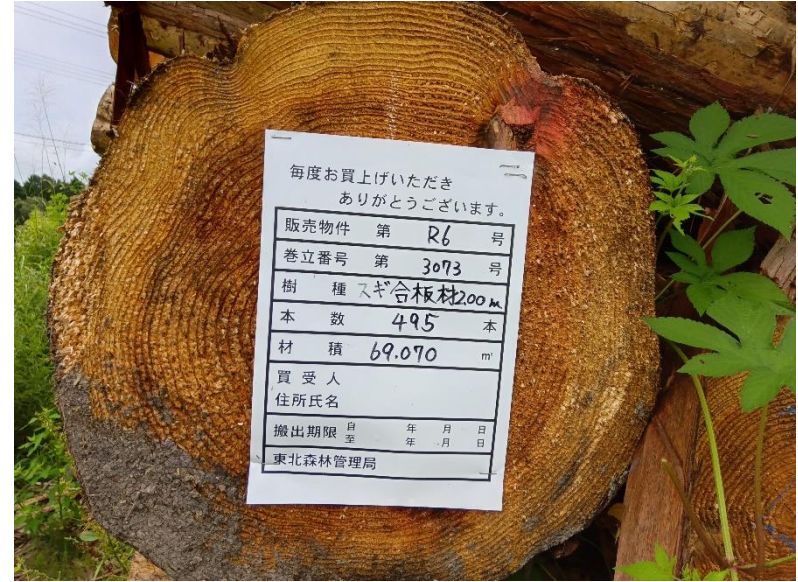 毎度お買上げいただき
ありがとうございます。
販売物件 第 R6 号
巻立番号 第 3073 号
樹 種 スギ合板材2.00m
本 数 495 本
材 積 69.070 ㎥
買 受 人
住所氏名
搬出期限 自 年 月 日
至 年 月 日
東北森林管理局